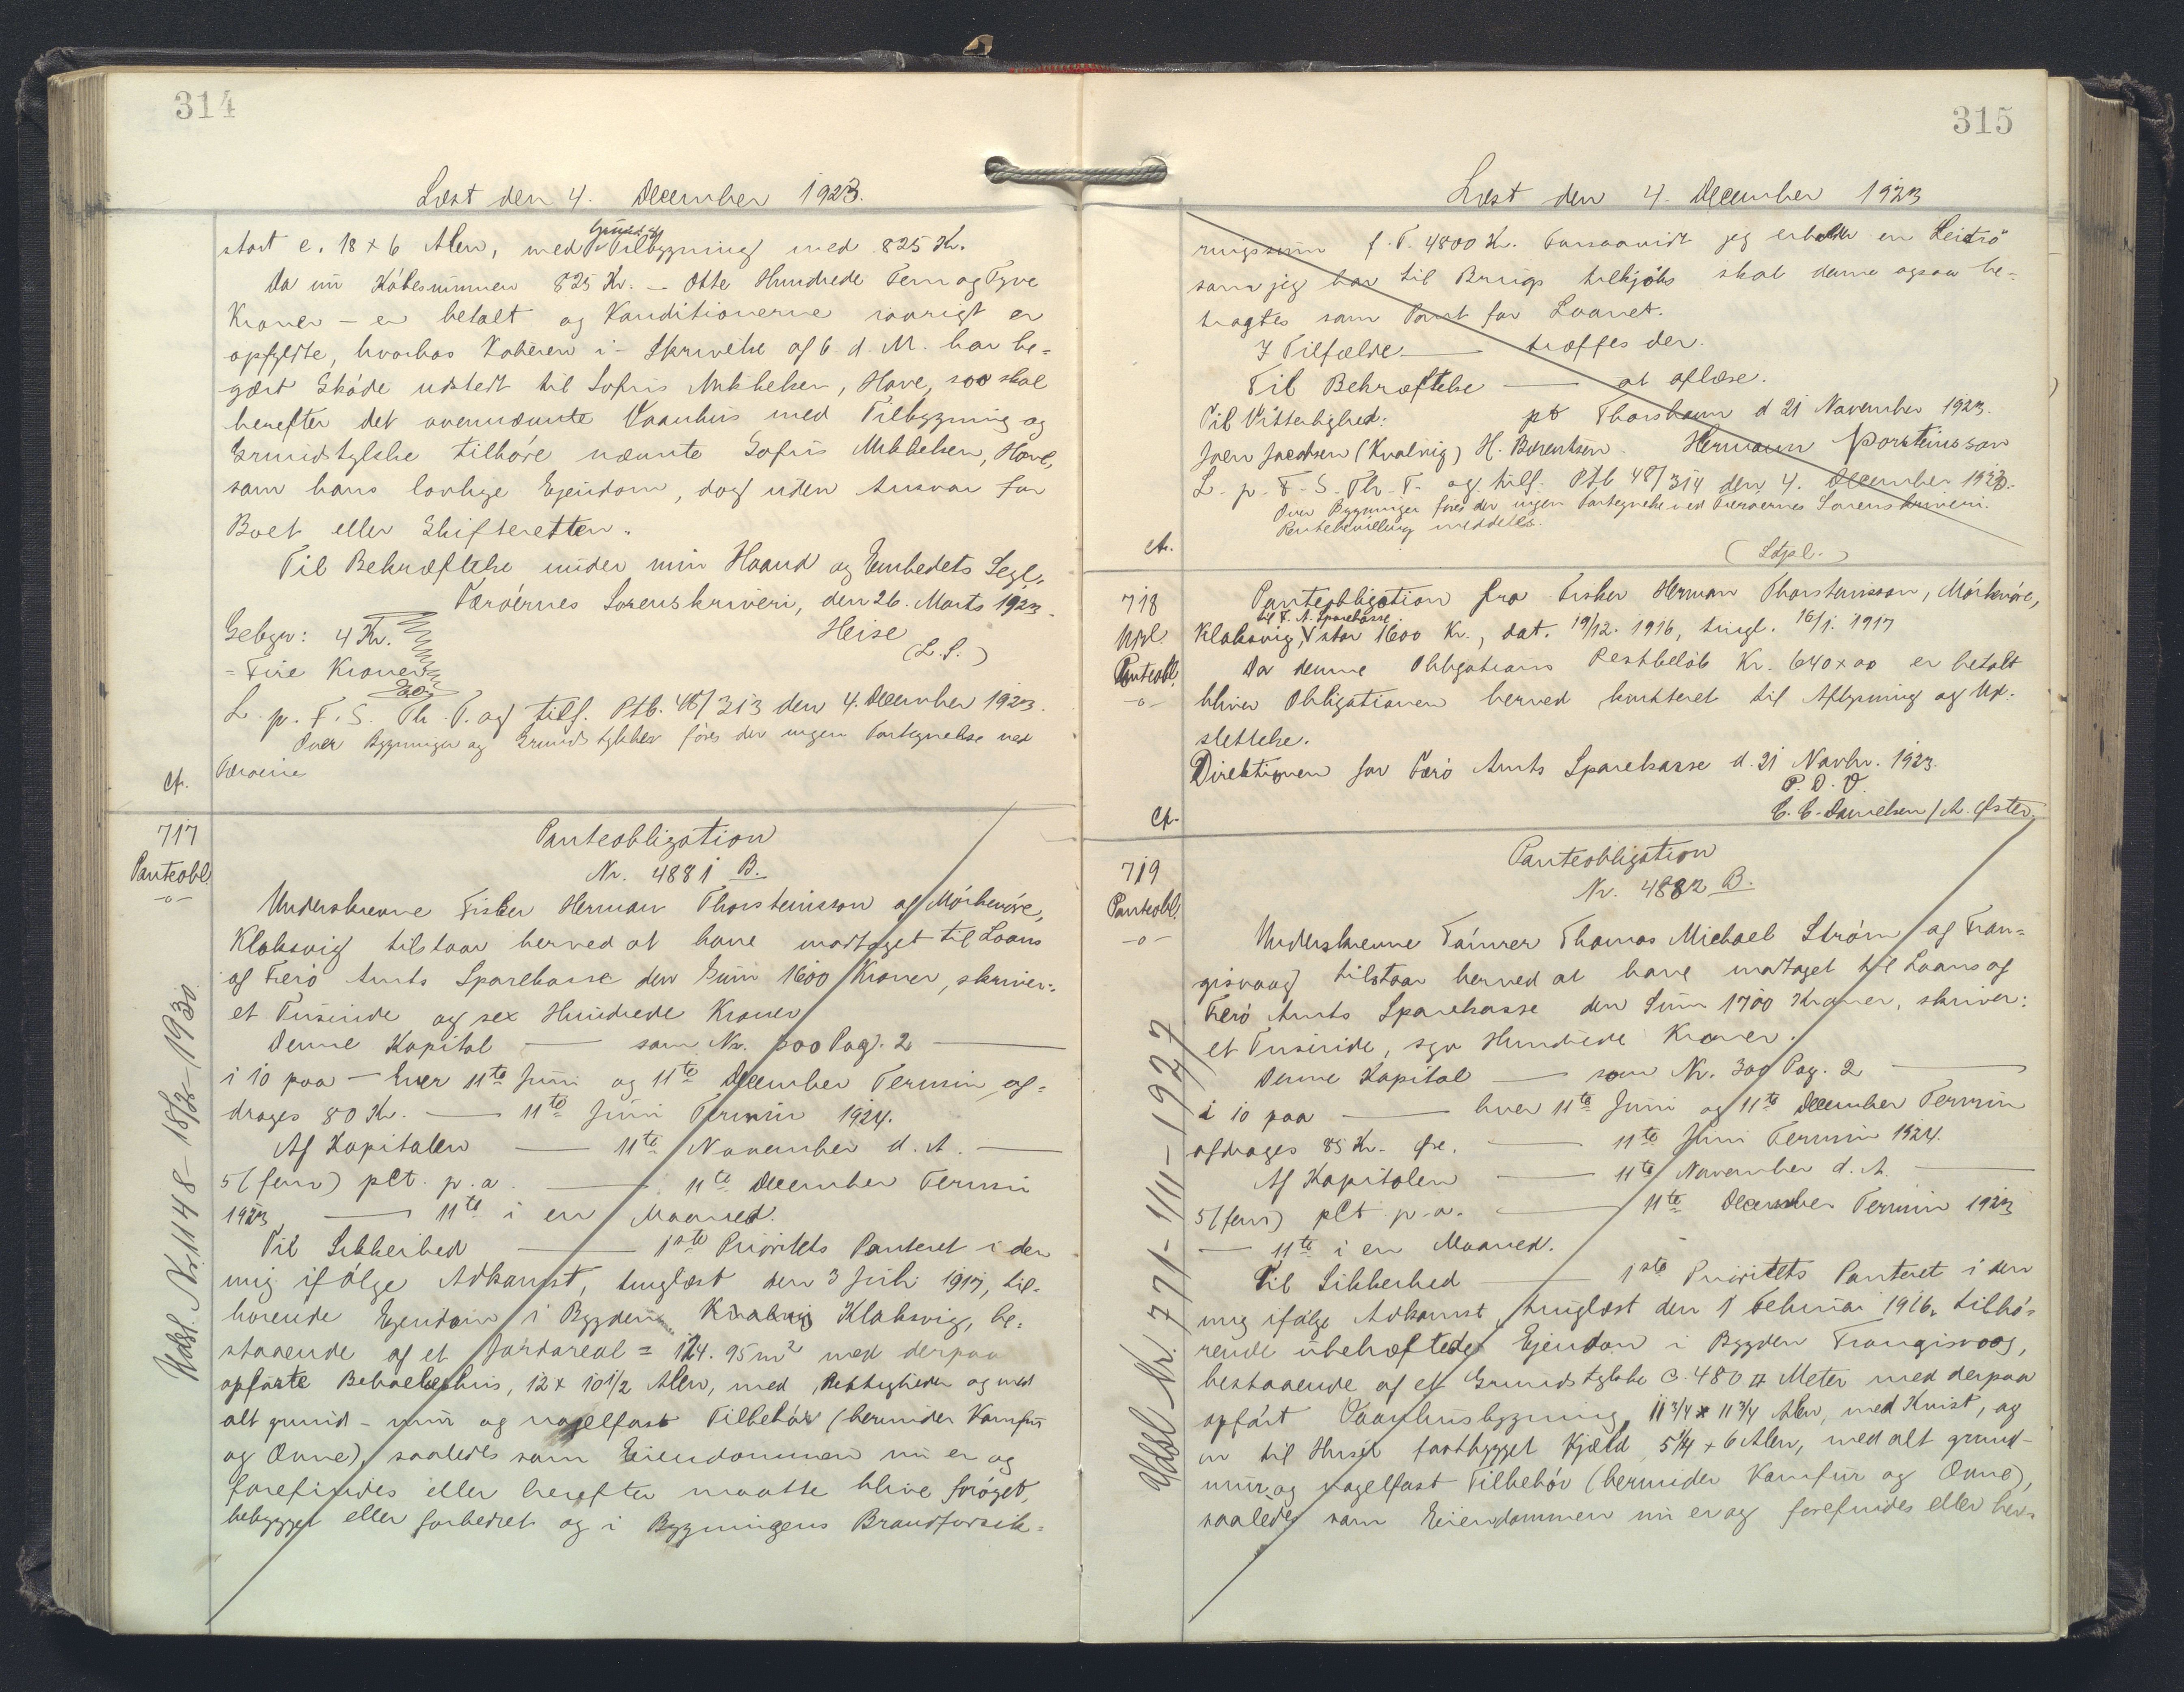 314
Læst den 4. December 1923.
stort c. 18 x 6 Alen, med Tilbygning med 825 Kr.
Da nu Købesummen 825 Kr. - Otte Hundrede Fem og Tyve
Kroner - er betalt og Konditionerne iøvrigt er
opfyldte, hvorhos Køberen i Skrivelse af 6 d. M. har be=
gært Skøde udstedt til Sofus Mikkelsen, Hove, saa skal
herefter det ovennævnte Vaanhus med Tilbygning og
Grundstykke tilhøre nævnte Sofus Mikkelsen, Hove,
som hans lovlige Ejendom, dog uden Ansvar for
Boet eller Skifteretten.
Til Bekræftelse under min Haand og Embedets Segl,
Færøernes Sorenskriveri, den 26. Marts 1923.
Gebyr: 4 Kr. Heise
= Fire Kroner (L. S.)
L. p. F. S. Th. T. og tilf. Ptb. 48/313 den 4. December 1923.
Over Bygninger og Grundstykker føres der ingen Fortegnelse ved
Færøerne
Cf.
717
Panteobl.
-o-
Udsl. Nr. 1148 - 18/12 - 1930.
Panteobligation
Nr. 4881 B.
Underskrevne Fisker Herman Thorsteinsson af Mörkeröre,
Klaksvig tilstaar herved at have modtaget til Laans
af Færø Amts Sparekasse den Sum 1600 Kroner, skriver:
et Tusinde og sex Hundrede Kroner
Denne Kapital — som Nr. 300 Pag. 2 —
i 10 paa - hver 11te Juni og 11te December Termin af=
drages 80 Kr. — 11te Juni Termin 1924.
Af Kapitalen — 11te November d. A. —
5 (fem) pCt. p. a. — 11te December Termin
1923 — 11te i en Maaned.
Til Sikkerhed — 1ste Prioritets Panteret i den
mig ifölge Adkomst, tinglæst den 3 Juli 1917, til-
hørende Ejendom i Bygden Klaksvig, be=
staaende af et Jordareal = 124.95 m2 med derpaa
opførte Beboelseshus, 12 x 10 1/2 Alen, med Rettigheder og med
alt grund- mur og nagelfast Tilbehør (herunder Komfur
og Ovne), saaledes som Eiendommen nu er og
forefindes eller herefter maatte blive forøget,
bebygget eller forbedret og i Bygningens Brandforsik=
315
Læst den 4. December 1923
ringssum f. T. 4800 Kr. Forsaavidt jeg erholder en Leitrö
som jeg har til Brugs tilkjøbs skal denne ogsaa be=
tragtes som Pant for Laanet.
I Tilfælde — træffes der.
Til Bekræftelse — at aflæse.
Til Vitterlighed: pt Thorshavn d 21 November 1923.
Joen Jacobsen (Kvalvig) H. Berentsen. Hermann Þorsteinsson
L. p. F. S. Th. T. og tilf. Ptb 48/314 den 4. December 1923.
Over Bygninger føres der ingen Fortegnelse ved Færøernes Sorenskriveri.
Rentebevilling meddeles.
Cf.
(Stpl.)
718
Panteobl.
-o-
Panteobligation fra Fisker Herman Thorsteinsson, Mörkeröre,
til F. A. Sparekasse
Klaksvig, stor 1600 Kr., dat. 19/12. 1916, tingl. 16/1. 1917
Da denne Obligations Restbeløb Kr. 640 x 00 er betalt
bliver Obligationen herved kvitteret til Aflysning og Ud-
slettelse.
Direktionen for Færø Amts Sparekasse d. 21 Novbr. 1923.
P. D. V.
C. C. Danielsen / A. Øster
Cf.
719
Panteobl.
-o-
Udsl Nr. 771 - 1/11 - 1927
Panteobligation
Nr. 4882 B.
Underskrevne Tömrer Thomas Michael Ström af Tran=
gisvaag tilstaar herved at have modtaget til Laans af
Færö Amts Sparekasse den Sum 1700 Kroner, skriver:
et Tusinde, syv Hundrede Kroner.
Denne Kapital — som Nr. 300 Pag. 2 —
i 10 paa — hver 11te Juni og 11te December Termin
afdrages 85 Kr. Øre. — 11te Juni Termin 1924.
Af Kapitalen — 11te November d. A. —
5 (fem) pCt p. a. — 11te December Termin 1923
— 11te i en Maaned.
Til Sikkerhed — 1ste Prioritets Panteret i den
mig ifölge Adkomst, tinglæst den 1 Februar 1916, tilhö=
rende ubehæftede Ejendom i Bygden Trangisvaag,
bestaaende af et Grundstykke c. 480 □ Meter med derpaa
opført Vaanhusbygning, 11 3/4 x 11 3/4 Alen, med Kvist, og
en til Huset fastbygget Kjæld 5 1/4 x 6 Alen, med alt grund-
mur og nagelfast Tilbehør (herunder Komfur og Ovne),
saaledes som Eiendommen nu er og forefindes eller her-